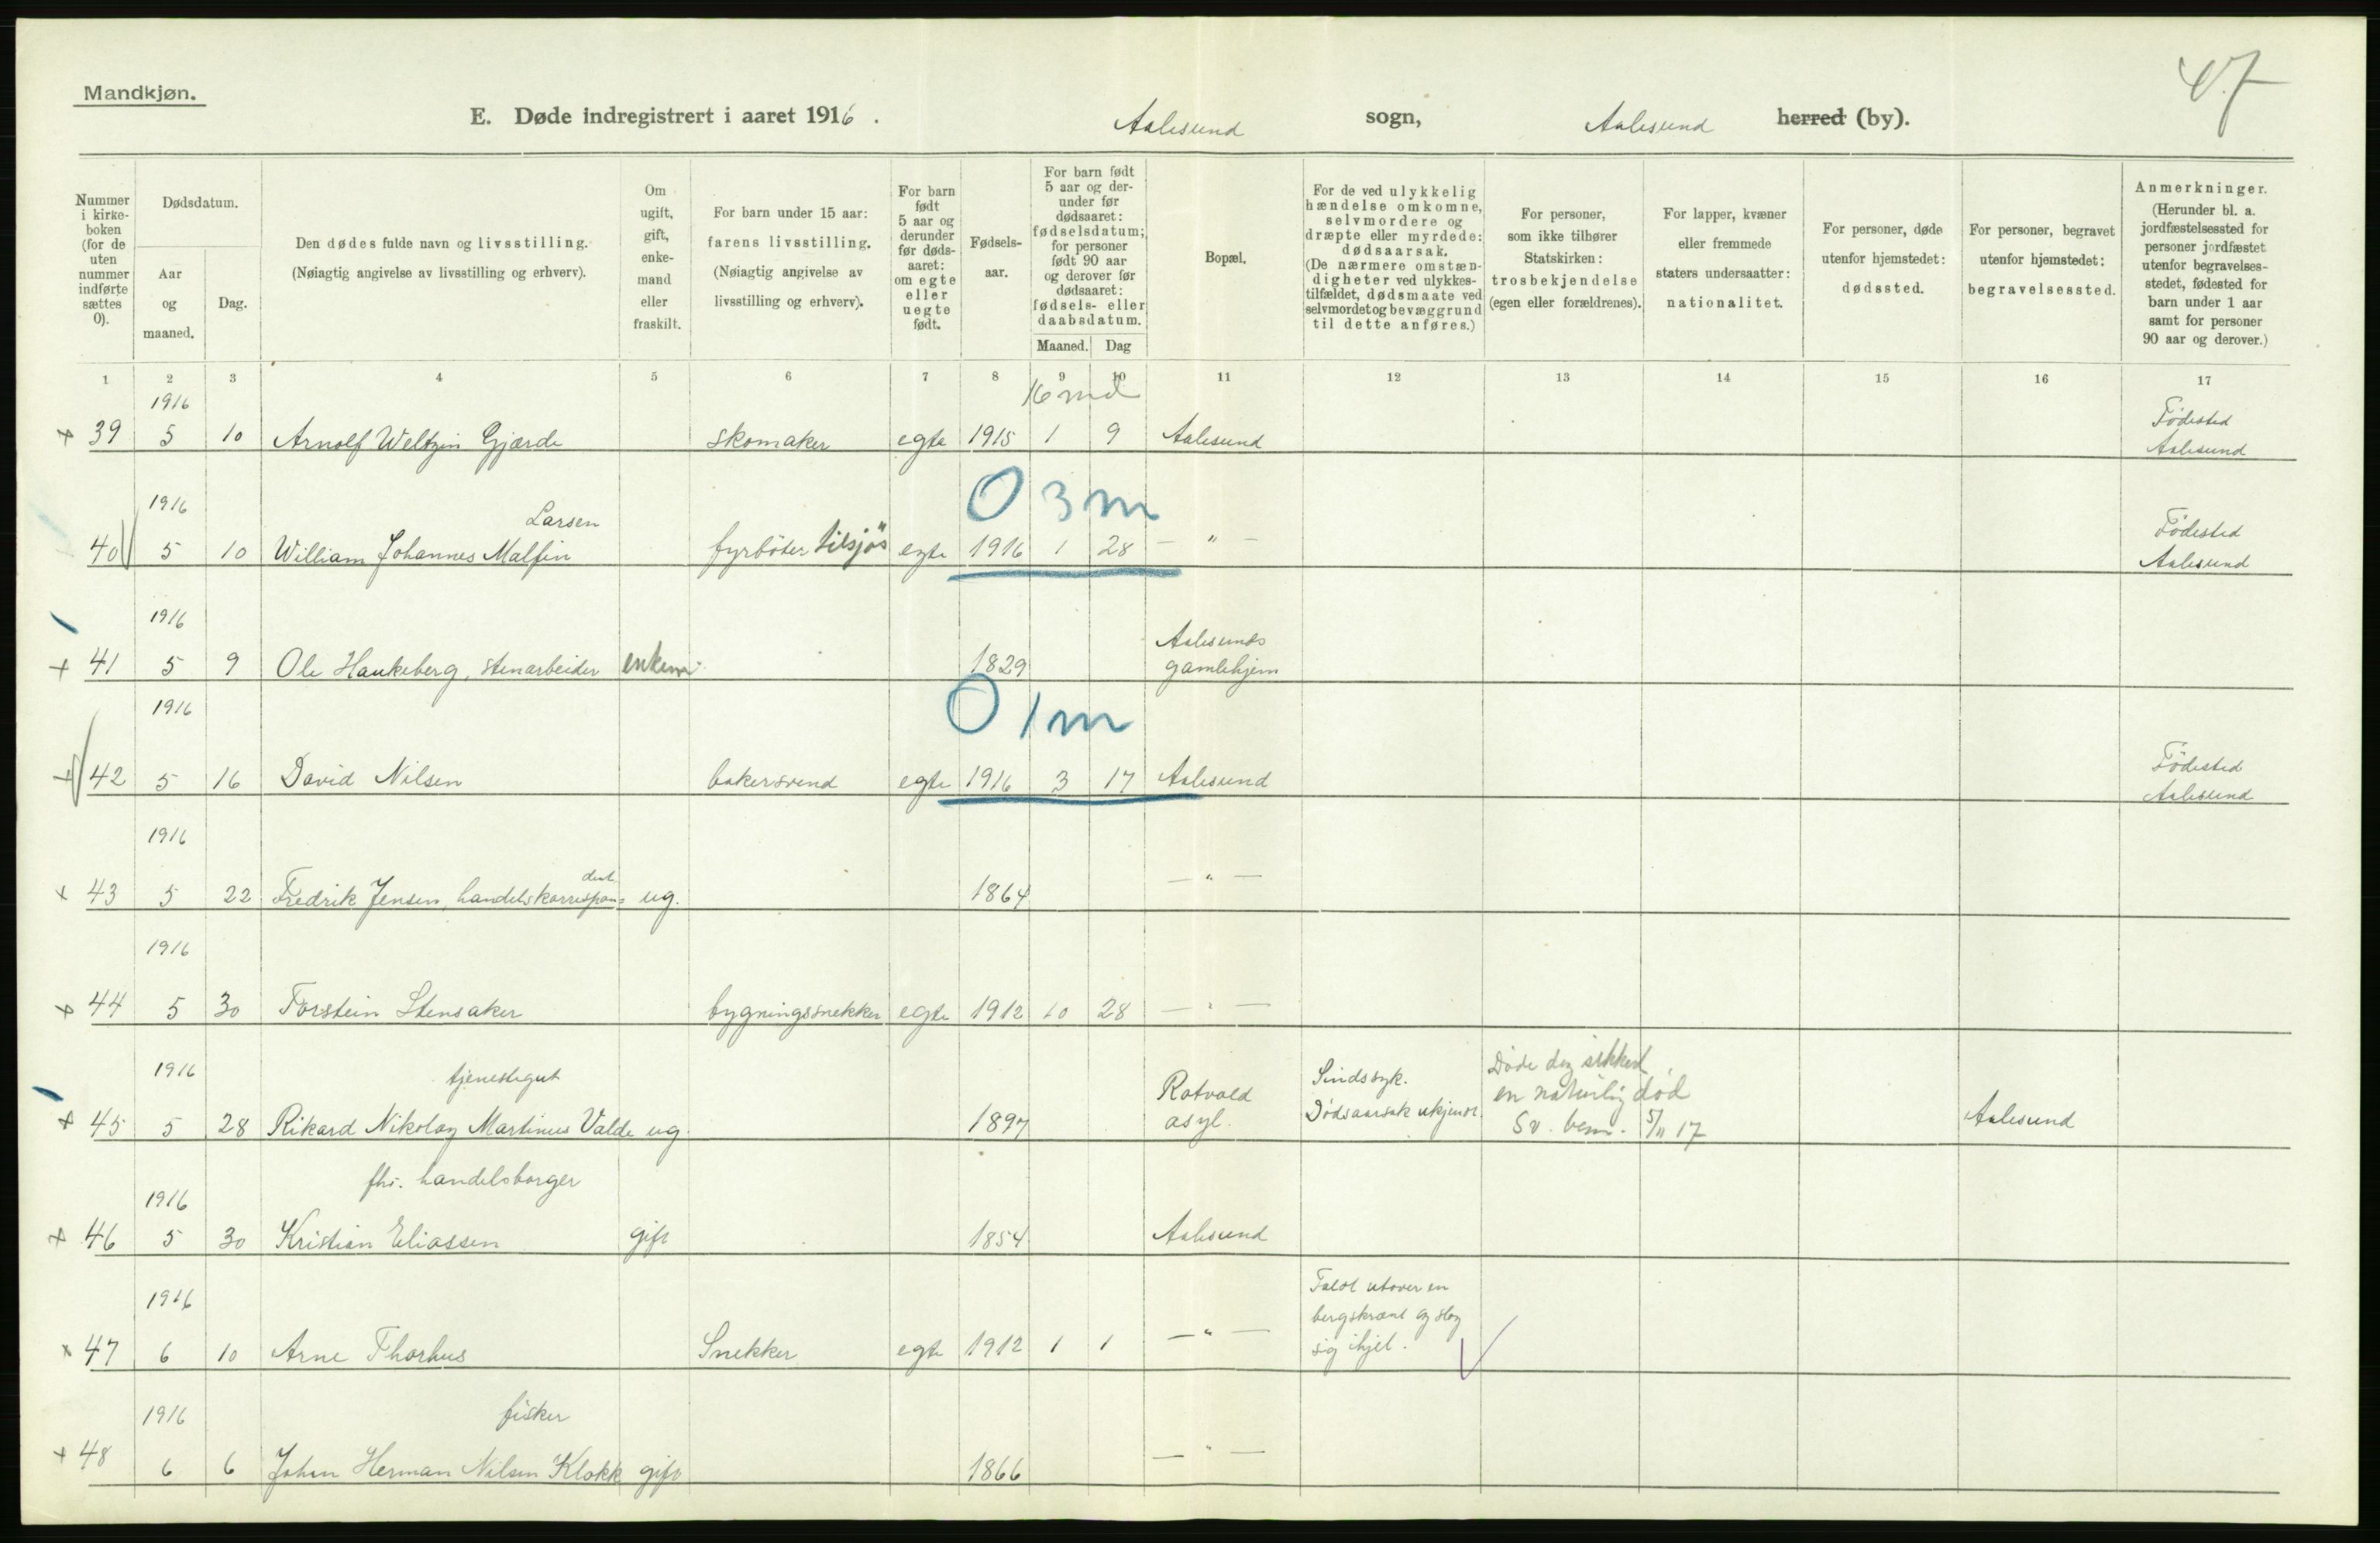 Mandkjøn.
47
E. Døde indregistrert i aaret 1916. Aalesund sogn, Aalesund herred (by).
Nummer i kirke-boken (for de uten nummer indførte sættes 0).
Dødsdatum.
Aar og maaned.
Dag.
Den dødes fulde navn og livsstilling.
(Nøiagtig angivelse av livsstilling og erhverv).
Om ugift, gift, enke-mand eller fraskilt.
For barn under 15 aar: farens livsstilling. (Nøiagtig angivelse av livsstilling og erhverv).
For barn født 5 aar og derunder før døds-aaret: om egte eller uegte født.
Fødsels-aar.
For barn født 5 aar og der-under før dødsaaret: fødselsdatum; for personer født 90 aar og derover før dødsaaret: fødsels- eller daabsdatum.
Maaned. Dag
Bopæl.
For de ved ulykkelig hændelse omkomne, selvmordere og dræpte eller myrdede: dødsaarsak. (De nærmere omstæn-digheter ved ulykkes-tilfældet, dødsmaate ved selvmordet og bevæggrund til dette anføres.)
For personer, som ikke tilhører Statskirken: trosbekjendelse (egen eller forældrenes).
For lapper, kvæner eller fremmede staters undersaatter: nationalitet.
For personer, døde utenfor hjemstedet: dødssted.
For personer, begravet utenfor hjemstedet: begravelsessted.
Anmerkninger. (Herunder bl. a. jordfæstelsessted for personer jordfæstet utenfor begravelses-stedet, fødested for barn under 1 aar samt for personer 90 aar og derover.)
1 2 3 4 5 6 7 8 9 10 11 12 13 14 15 16 17
1916 16 md
+ 39 5 10 Arnolf Weltzin Gjærde skomaker egte 1915 1 9 Aalesund Fødested Aalesund
1916 Larsen 0 3 m
40 5 10 William Johannes Malfin fyrbøter tilsjøs egte 1916 1 28 - " - Fødested Aalesund
1916
+ 41 5 9 Ole Haukeberg, stenarbeider enkem. 1829 Aalesunds gamlehjem
1916 0 1 m
+ 42 5 16 David Nilsen bakersvend egte 1916 3 17 Aalesund Fødested Aalesund
1916 dent
x 43 5 22 Fredrik Jensen, handelskorrespon= ug. 1864 - " -
1916
x 44 5 30 Torstein Stensaker bygningssnekker egte 1912 10 28 - " -
1916 tjenestegut
x 45 5 28 Rikard Nikolay Martinus Valde ug. 1897 Rotvold asyl. Sindssyk. Dødsaarsak ukjendt. Døde dog sikkert en naturlig død Sv. bem. 5/11 17 Aalesund
fhv. handelsborger
1916
x 46 5 30 Kristian Eliassen gift 1854 Aalesund
1916
x 47 6 10 Arne Thorhus Snekker egte 1912 1 1 - " - Faldt utover en bergskrænt og slog sig ihjel.
1916 fisker
+ 48 6 6 Johan Herman Nilsen Klokk gift 1866 - " -